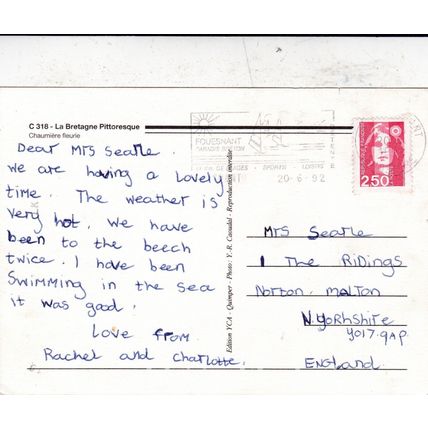 C 318 - La Bretagne Pittoresque
Chaumière fleurie
FOUESNANT
20-6-92
2,50
Dear Mrs Searle.
We are having a lovely
time. The weather is
very hot. We have
been to the beech
twice. I have been
Swimming in the sea
it was good.
Love from
Rachel and Charlotte.
Edition YCA - Quimper - Photo : Y.-R. Caoudal - Reproduction interdite
Mrs Searle
1 The Ridings
Norton. Malton
N.Yorkshire
YO17.9AP.
ENGLAND.